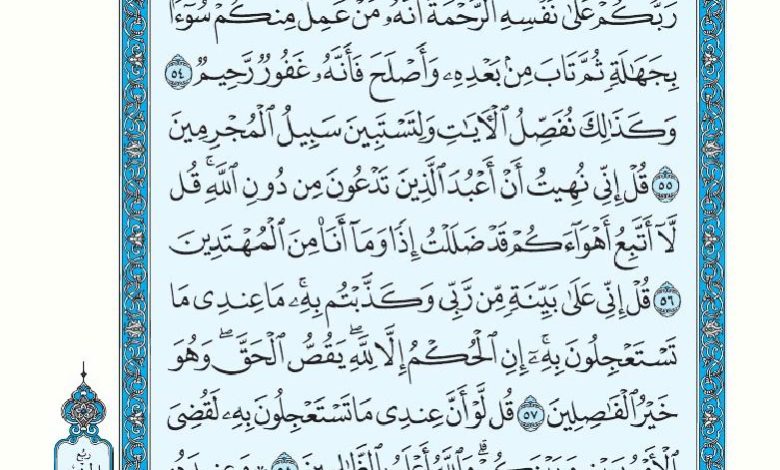 رَبُّكُمْ عَلَىٰ نَفْسِهِ الرَّحْمَةَ أَنَّهُۥ مَنْ عَمِلَ مِنكُمْ سُوٓءًۢا
بِجَهَـٰلَةٍ ثُمَّ تَابَ مِنۢ بَعْدِهِۦ وَأَصْلَحَ فَأَنَّهُۥ غَفُورٌ رَّحِيمٌ ٥٤
وَكَذَٰلِكَ نُفَصِّلُ الْأَيَـٰتِ وَلِتَسْتَبِينَ سَبِيلُ الْمُجْرِمِينَ
٥٥ قُلْ إِنِّى نُهِيتُ أَنْ أَعْبُدَ الَّذِينَ تَدْعُونَ مِن دُونِ اللَّهِ ۚ قُل
لَّآ أَتَّبِعُ أَهْوَآءَكُمْ قَدْ ضَلَلْتُ إِذًا وَمَآ أَنَا۠ مِنَ الْمُهْتَدِينَ
٥٦ قُلْ إِنِّى عَلَىٰ بَيِّنَةٍ مِّن رَّبِّى وَكَذَّبْتُم بِهِۦ ۚ مَا عِندِى مَا
تَسْتَعْجِلُونَ بِهِۦٓ ۚ إِنِ الْحُكْمُ إِلَّا لِلَّهِ ۖ يَقُصُّ الْحَقَّ ۖ وَهُوَ
خَيْرُ الْفَـٰصِلِينَ ٥٧ قُل لَّوْ أَنَّ عِندِى مَا تَسْتَعْجِلُونَ بِهِۦ لَقُضِىَ
الْأَمْرُ بَيْنِى وَبَيْنَكُمْ ۗ وَاللَّهُ أَعْلَمُ بِالظَّـٰلِمِينَ ٥٨ وَعِندَهُۥ
ربع